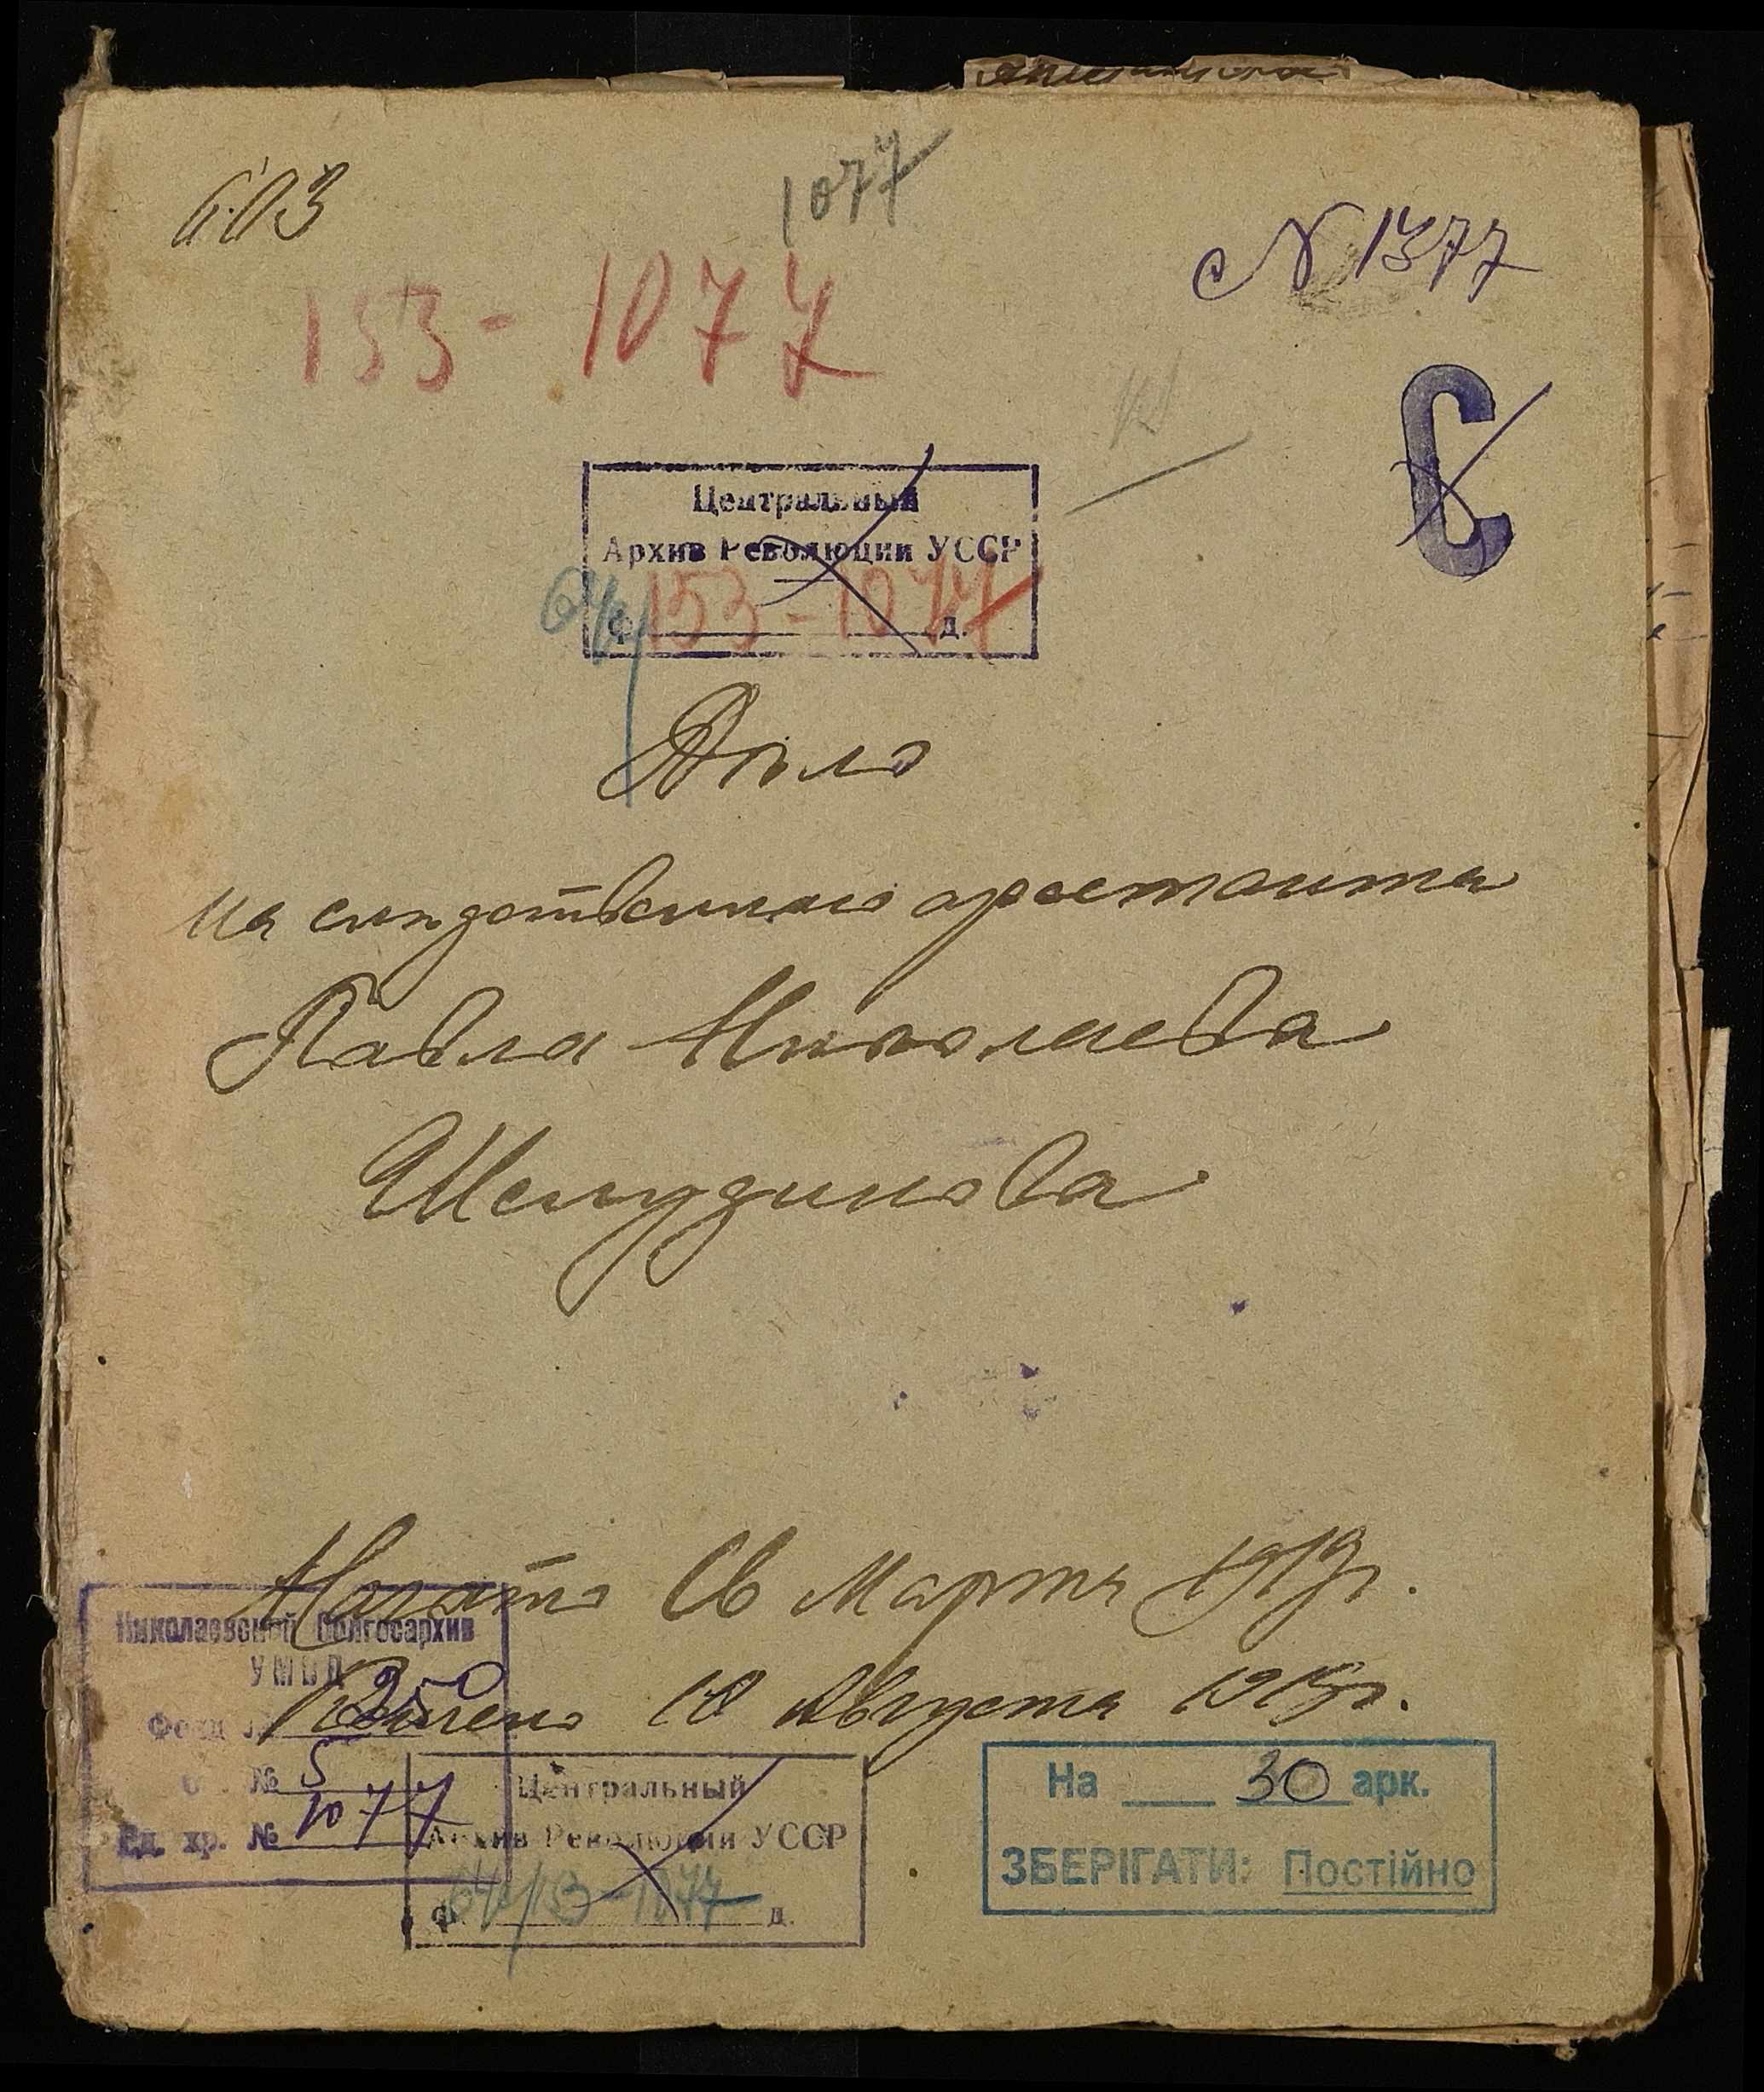 603
1077
№ 1377
153 - 1077
С
Центральный
Архив Революции УССР
ф. 153 - 1077 д.
Дѣло
на слѣдственнаго арестанта
Павла Николаева
Шелудинова
Начато 16 Марта 1919 г.
Кончено 10 Августа 1919 г.
Николаевский Облгосархив
УМВД
Фонд № 250
Оп. № 5
Ед. хр. № 1077
Центральный
Архив Революции УССР
ф. 153 - 1077 д.
На 30 арк.
ЗБЕРІГАТИ: Постійно